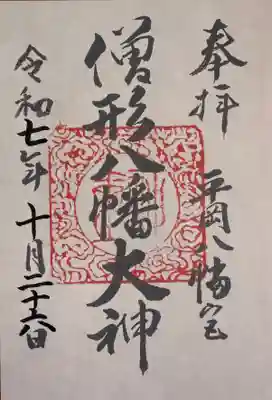 奉拝
平岡八幡宮
僧形八幡大神
令和七年 十月二十六日